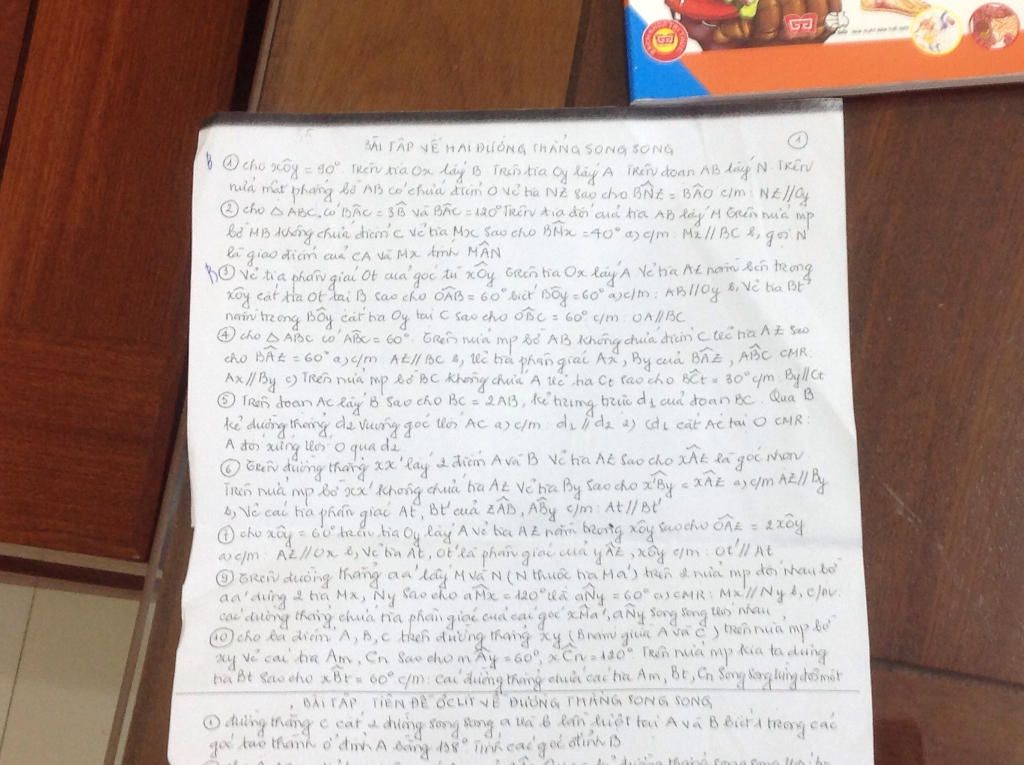 BÀI TẬP VỀ HAI ĐƯỜNG THẲNG SONG SONG
1
B ① cho xÔy = 90°. Trên tia Ox lấy B Trên tia Oy lấy A Trên đoạn AB lấy N. Trên
nửa mặt phẳng bờ AB có chứa điểm O vẽ tia Nz sao cho BN̂z = BÂO c/m: Nz//Oy
② cho △ABC, có BÂC = 3B̂ và BÂC = 120° Trên tia đối của tia AB lấy M trên nửa mp
bờ MB không chứa điểm C vẽ tia Mx sao cho BM̂x = 40° a) c/m: Mx // BC b, gọi N
là giao điểm của CA và Mx tính MÂN
B ③ Vẽ tia phân giác Ot của góc tù xÔy trên tia Ox lấy A Vẽ tia Az nằm bên trong
xÔy cắt tia Ot tại B sao cho OÂB = 60° biết BÔy = 60° a) c/m: AB//Oy b, Vẽ tia Bt'
nằm trong BÔy cắt tia Oy tại C sao cho OB̂C = 60° c/m: OA//BC
④ cho △ABC có AB̂C = 60°. Trên nửa mp bờ AB không chứa điểm C vẽ tia Az sao
cho BÂz = 60° a) c/m: Az//BC b, Vẽ tia phân giác Ax, By của BÂz, AB̂C CMR:
Ax//By c) Trên nửa mp bờ BC không chứa A vẽ tia Ct sao cho BĈt = 30° c/m: By//Ct
⑤ Trên đoạn AC lấy B sao cho BC = 2AB, kẻ trung trực d1 của đoạn BC. Qua B
kẻ đường thẳng d2 vuông góc với AC a) c/m: d1 // d2 2) (d1 cắt AC tại O CMR:
A đối xứng với O qua d2
⑥ Trên đường thẳng xx' lấy 2 điểm A và B Vẽ tia Az sao cho xÂz là góc nhọn
Trên nửa mp bờ xx' không chứa tia Az vẽ tia By sao cho x'By = xÂz a) c/m Az//By
b, Vẽ các tia phân giác At, Bt' của zÂB, AB̂y c/m: At//Bt'
⑦ cho xÔy = 60° trên tia Oy lấy A vẽ tia Az nằm trong xÔy sao cho OÂz = 2xÔy
a) c/m: Az//Ox b, vẽ tia At, Ot' là phân giác của yÂz, xÔy c/m: Ot'//At
⑨ Trên đường thẳng aa' lấy M và N (N thuộc tia Ma') trên 2 nửa mp đối nhau bờ
aa' dựng 2 tia Mx, Ny sao cho aM̂x = 120° và aN̂y = 60° a) CMR: Mx//Ny b, c/m:
các đường thẳng chứa tia phân giác của các góc xM̂a', aN̂y song song với nhau
⑩ cho ba điểm A, B, C trên đường thẳng xy (B nằm giữa A và C) trên nửa mp bờ
xy vẽ các tia Am, Cn sao cho mÂy = 60°, xĈn = 120° Trên nửa mp kia ta dựng
tia Bt sao cho xB̂t = 60° c/m: các đường thẳng chứa các tia Am, Bt, Cn song song từng đôi một
BÀI TẬP TIÊN ĐỀ ƠCLIT VỀ ĐƯỜNG THẲNG SONG SONG
① đường thẳng c cắt 2 đường song song a và b lần lượt tại A và B biết 1 trong các
góc tạo thành ở đỉnh A bằng 138° Tính các góc đỉnh B